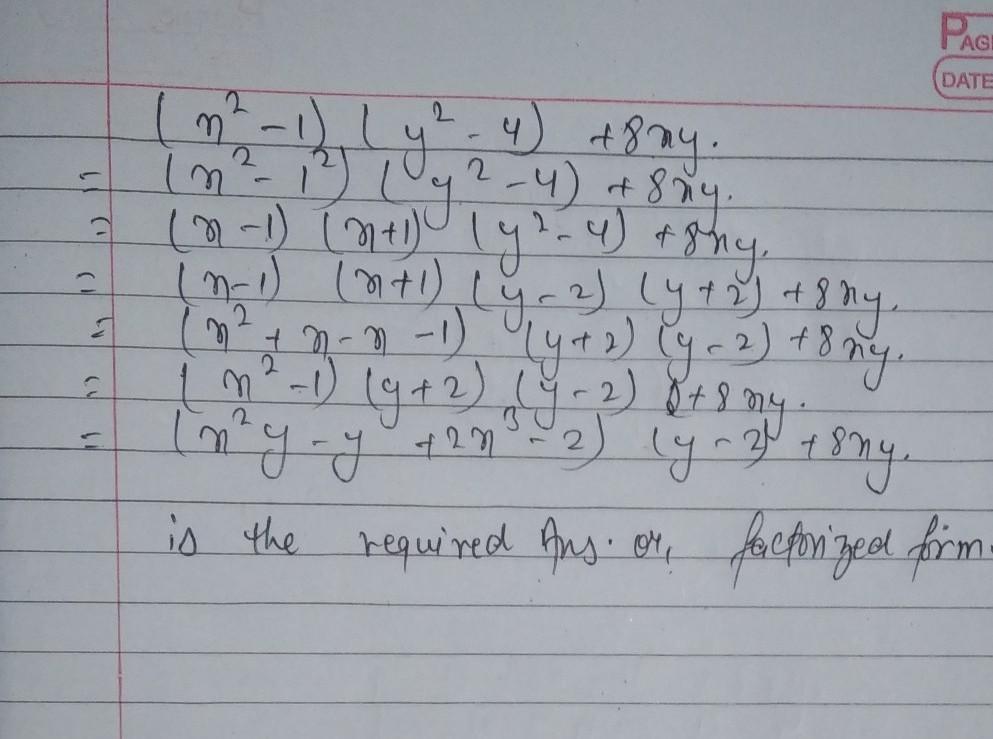 PAG
DATE
(x² - 1) (y² - 4) + 8xy.
= (x² - 1²) (y² - 4) + 8xy.
= (x - 1) (x+1) (y² - 4) + 8xy.
= (x - 1) (x+1) (y - 2) (y + 2) + 8xy.
= (x² + x - x - 1) (y + 2) (y - 2) + 8xy.
= (x² - 1) (y + 2) (y - 2) + 8xy.
= (x²y - y + 2x³ - 2) (y - 2) + 8xy.
is the required Ans. or, factorized form.